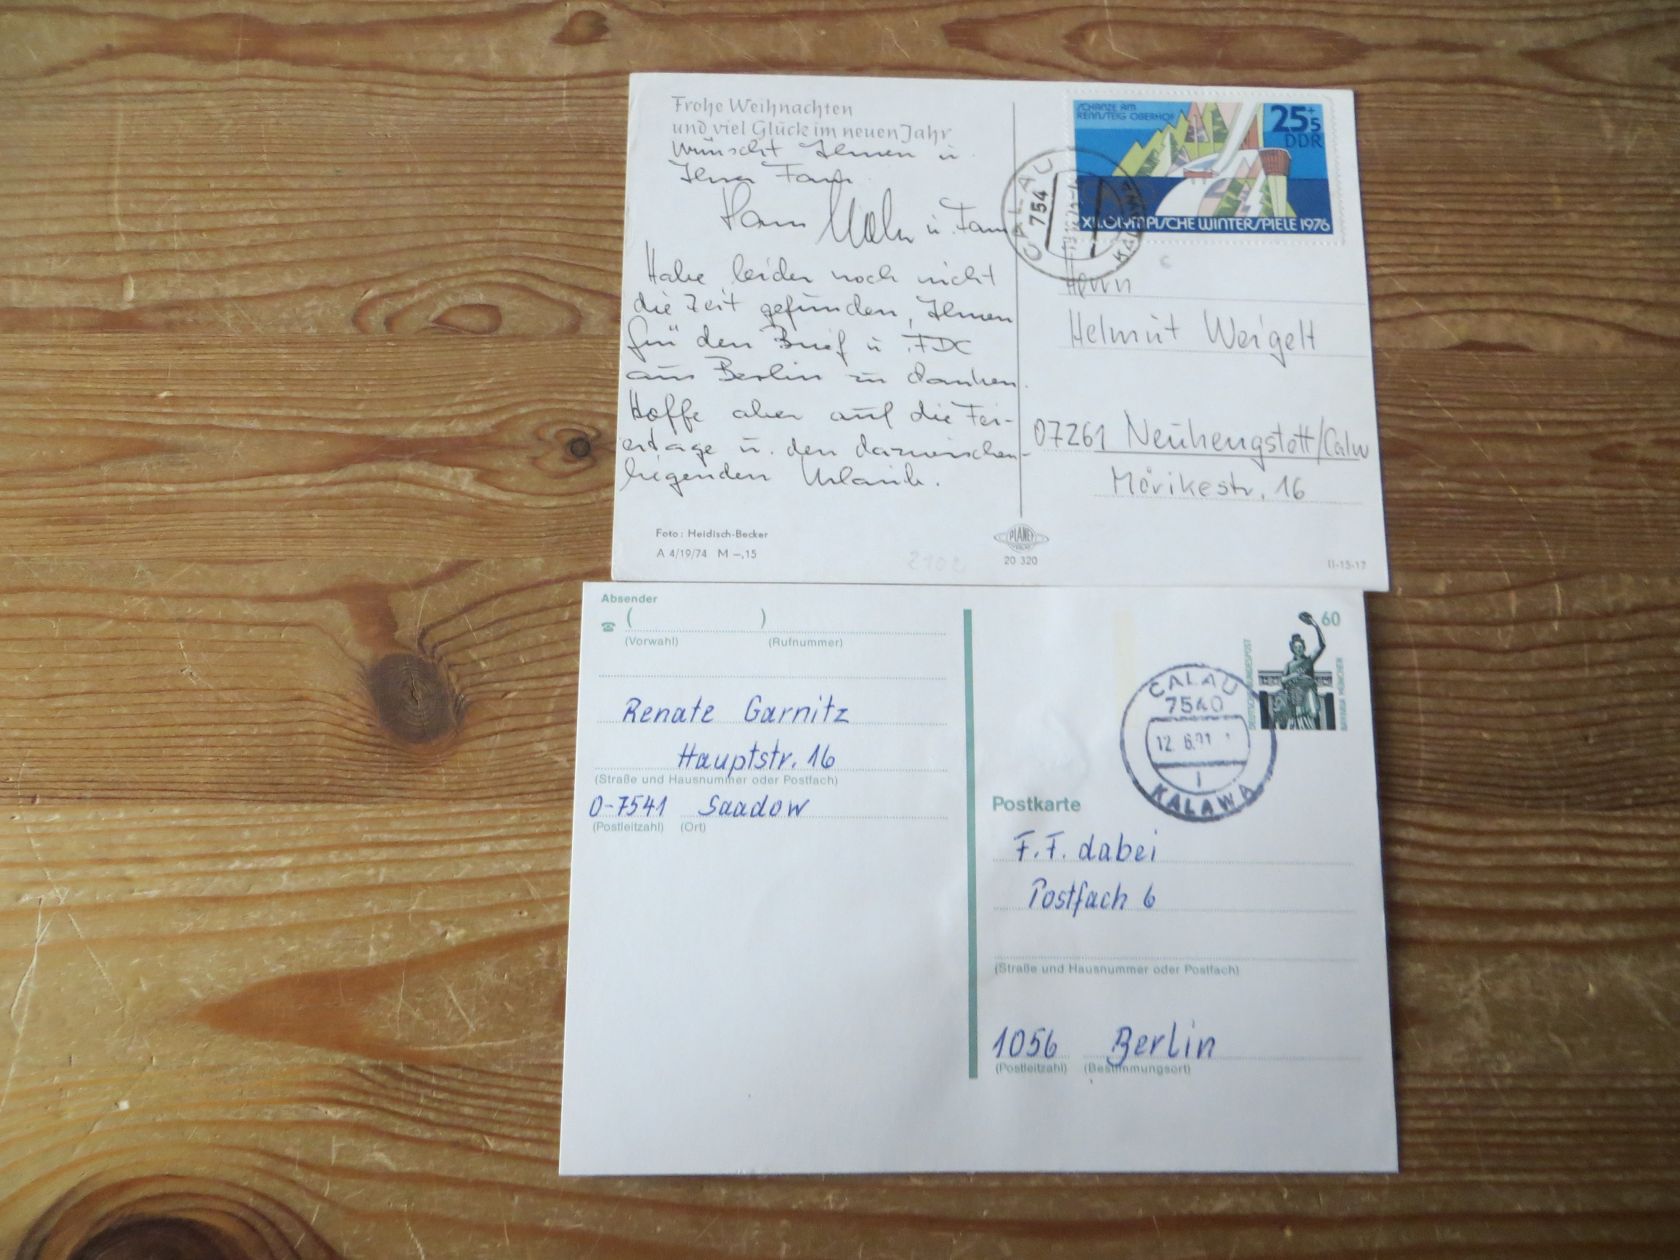 Frohe Weihnachten
und viel Glück im neuen Jahr
wünscht Ihnen u.
Ihrer Fam.
u. Fam
Habe leider noch nicht
die Zeit gefunden, Ihnen
für den Brief u. FDC
aus Berlin zu danken.
Hoffe aber auf die Fei-
ertage u. den dazwischen-
liegenden Urlaub.
Foto: Heidisch-Becker
A 4/19/74 M –,15
PLANET
20 320
2102
SCHANZE AM
RENNSTEIG OBERHOF
25+5
DDR
XII. OLYMPISCHE WINTERSPIELE 1976
CALAU
754
Herrn
Helmut Weigelt
07261 Neuhengstett/Calw
Mörikestr. 16
II-15-17
Absender
( )
(Vorwahl) (Rufnummer)
Renate Garnitz
Hauptstr. 16
(Straße und Hausnummer oder Postfach)
O-7541 Saadow
(Postleitzahl) (Ort)
60
DEUTSCHE BUNDESPOST
BAVARIA MÜNCHEN
CALAU
7540
12. 6.91
1
KALAWA
Postkarte
F.F. dabei
Postfach 6
(Straße und Hausnummer oder Postfach)
1056 Berlin
(Postleitzahl) (Bestimmungsort)